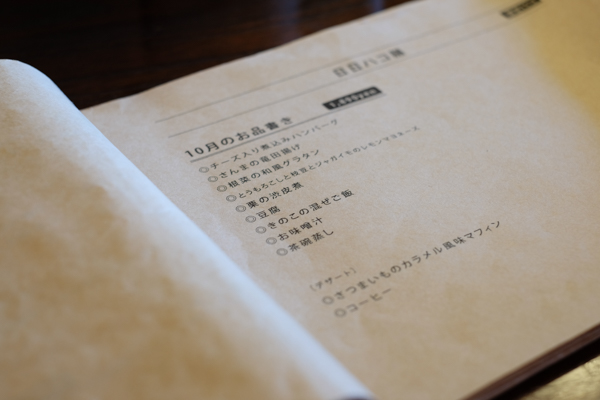 日日ハコ屋
10月のお品書き
◎チーズ入り煮込みハンバーグ
◎さんまの竜田揚げ
◎根菜の和風グラタン
◎とうもろこしと枝豆とジャガイモのレモンマヨネーズ
◎栗の渋皮煮
◎豆腐
◎きのこの混ぜご飯
◎お味噌汁
◎茶碗蒸し
(デザート)
◎さつまいものカラメル風味マフィン
◎コーヒー